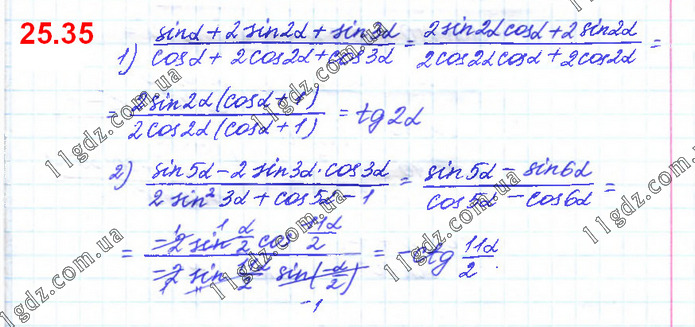 25.35
1) (sinα + 2 sin2α + sin3α)/(cosα + 2cos2α + cos3α) = (2sin2α cosα + 2sin2α)/(2cos2α cosα + 2cos2α) =
= (2sin2α(cosα + 1))/(2cos2α(cosα + 1)) = tg2α
2) (sin5α - 2 sin3α · cos3α)/(2 sin² 3α + cos5α - 1) = (sin5α - sin6α)/(cos5α - cos6α) =
= (-2 sin α/2 cos 11α/2)/(-2 sin 11α/2 sin(-α/2)) = -ctg 11α/2.
11gdz.com.ua
11gdz.com.ua
11gdz.com.ua
11gdz.com.ua
11gdz.com.ua
11gdz.com.ua